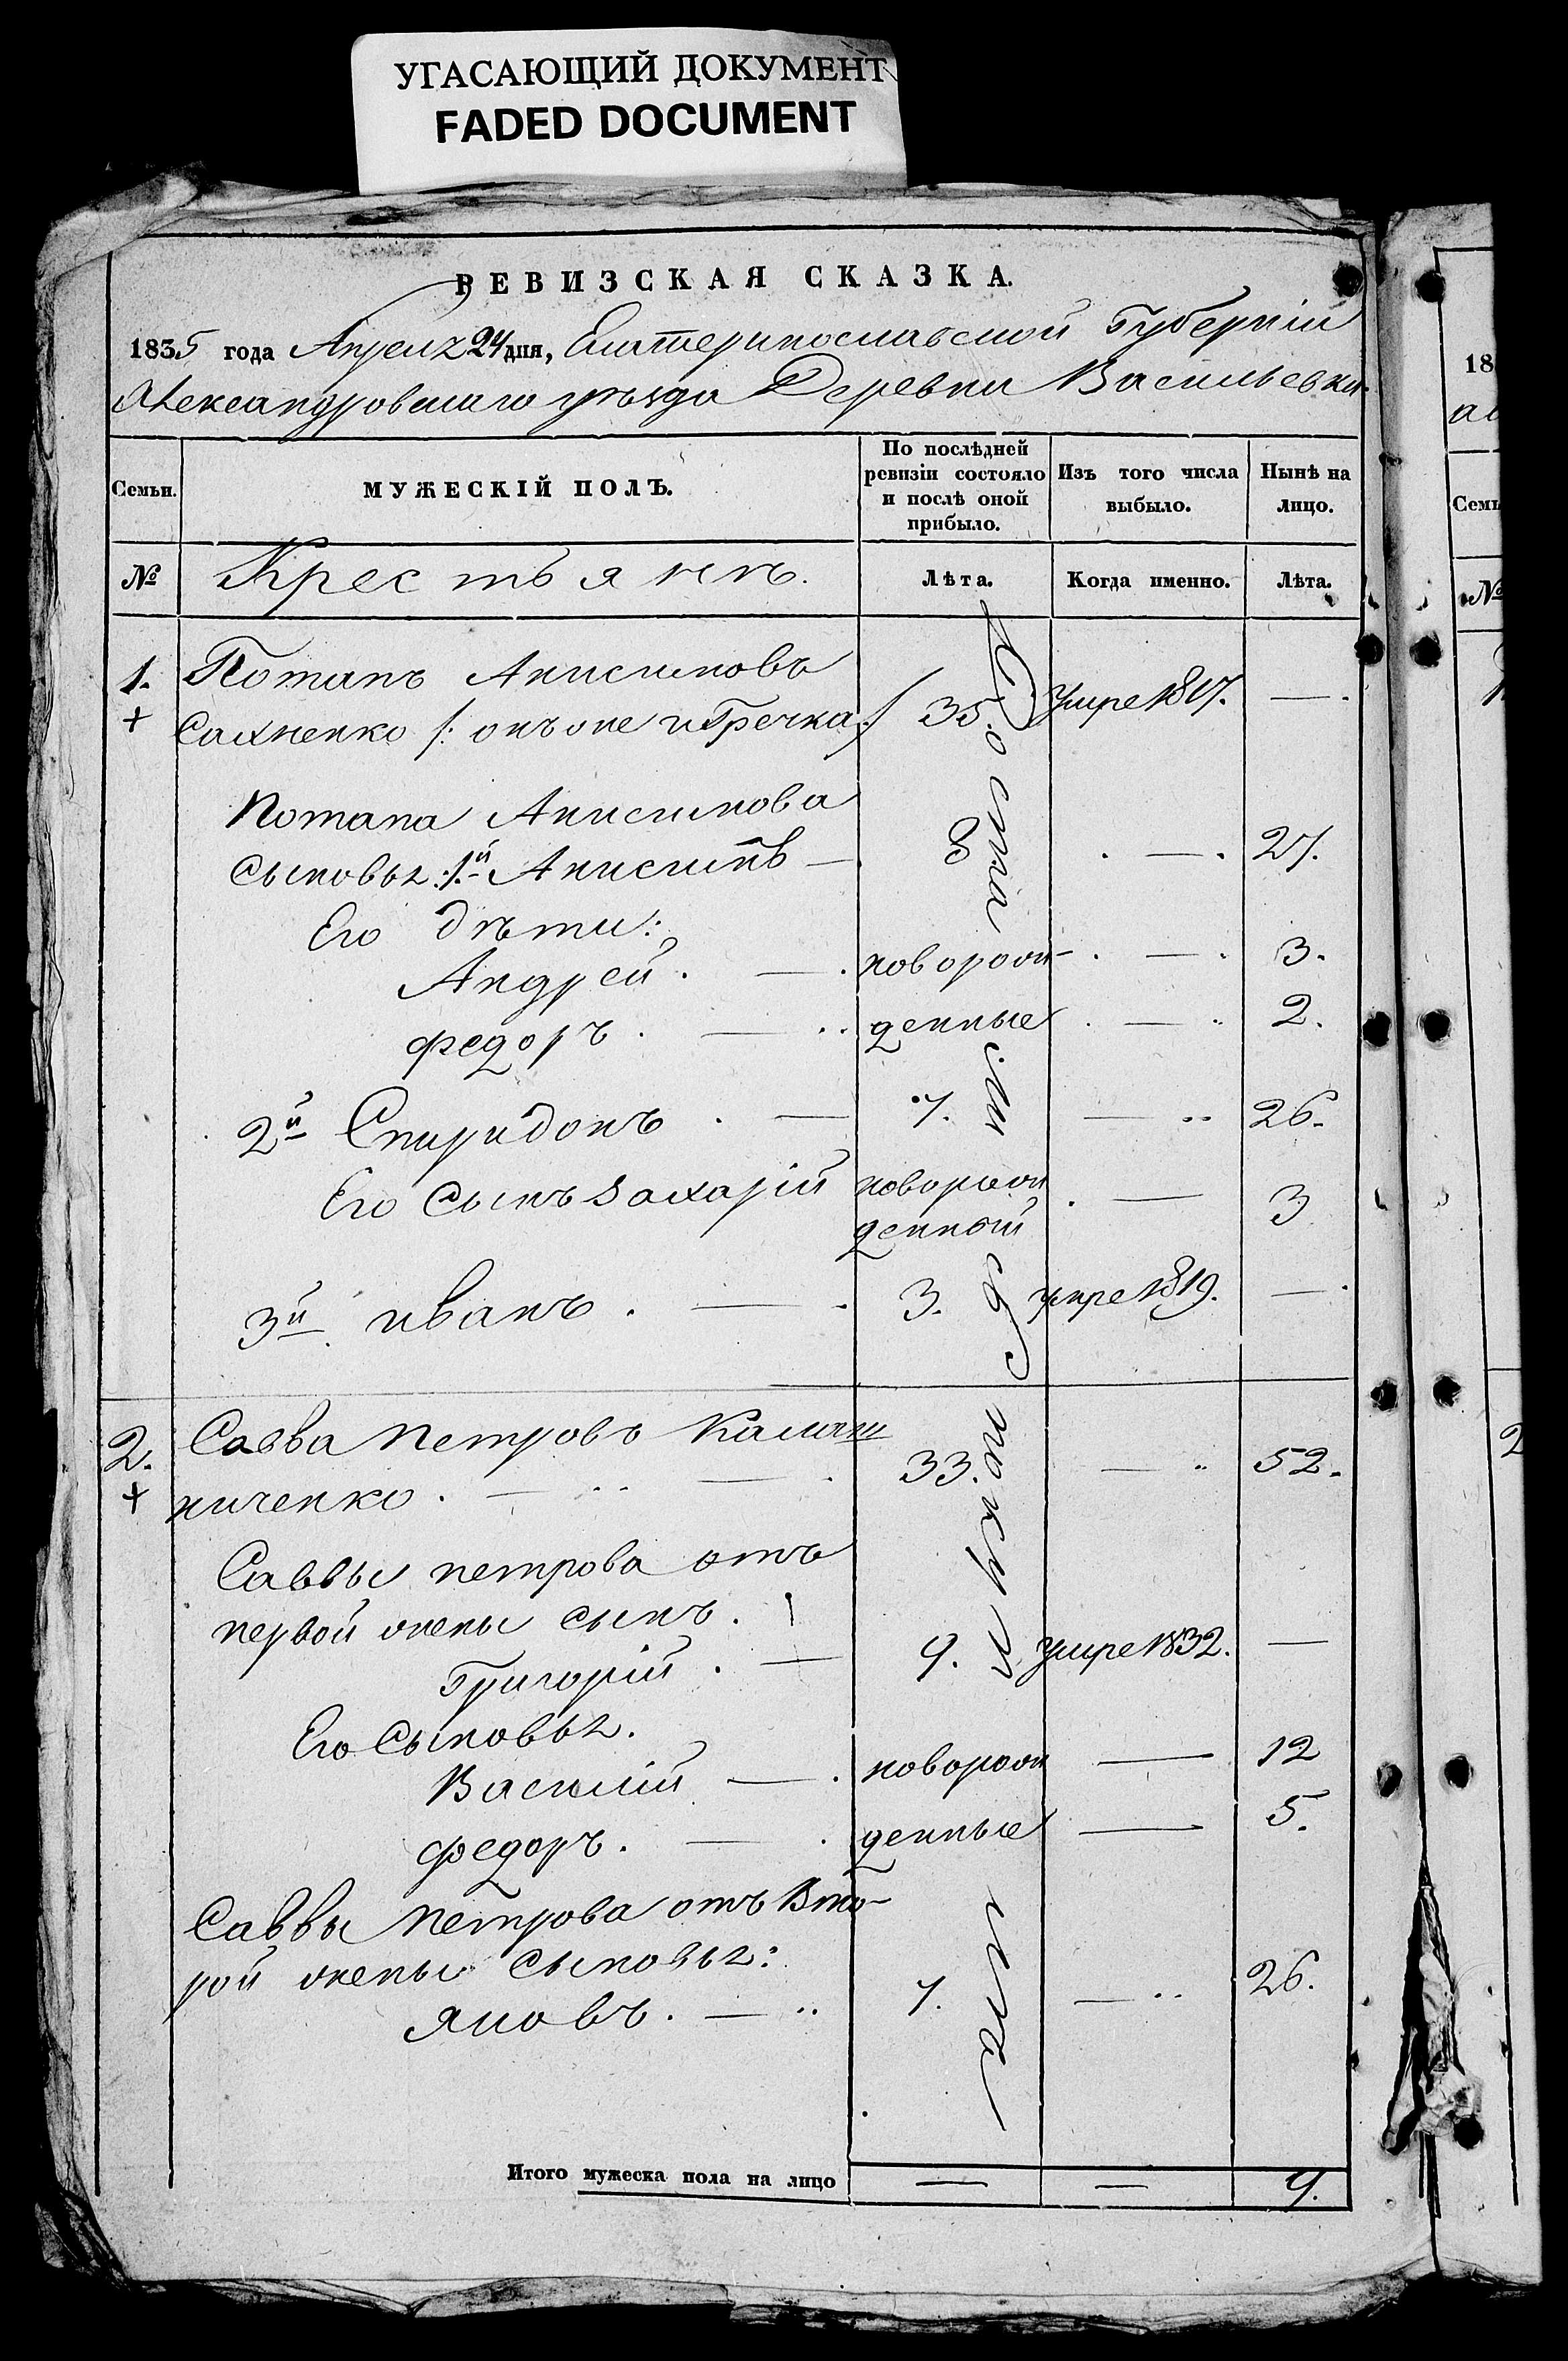 УГАСАЮЩИЙ ДОКУМЕНТ
FADED DOCUMENT
РЕВИЗСКАЯ СКАЗКА.
1835 года Апреля 24 дня, Екатеринославской Губерніи
Александровскаго уѣзда Деревни Васильевки.
Семьи.
МУЖЕСКІЙ ПОЛЪ.
По послѣдней ревизіи состояло и послѣ оной прибыло.
Изъ того числа выбыло.
Нынѣ на лицо.
№ Крестьянъ. Лѣта. Когда именно. Лѣта.
1. Потапъ Анисимовъ
+ Сахненко /: онъ же и Гречка :/ 35. умре 1817. —
Потапа Анисимова
сыновья: 1й Анисимъ — 8 — 27.
Его дѣти:
Андрей. — новорож- — 3.
Федоръ. — денные — 2.
2й Спиридонъ. — 7. — 26.
Его Сынъ Захарій новорож
денный — 3
3й иванъ. — 3. умре 1819. —
2. Савва петровъ Калаш
+ ниченко. — 33. — 52.
Саввы петрова отъ
первой жены сынъ.
Григорій. — 9. умре 1832. —
Его Сыновья.
Василій — новорож — 12
Федоръ. — денные — 5.
Саввы петрова отъ Вто-
рой жены сыновья:
Яковъ. — 7. — 26.
Итого мужеска пола на лицо — — 9.
18
Семь
№
2